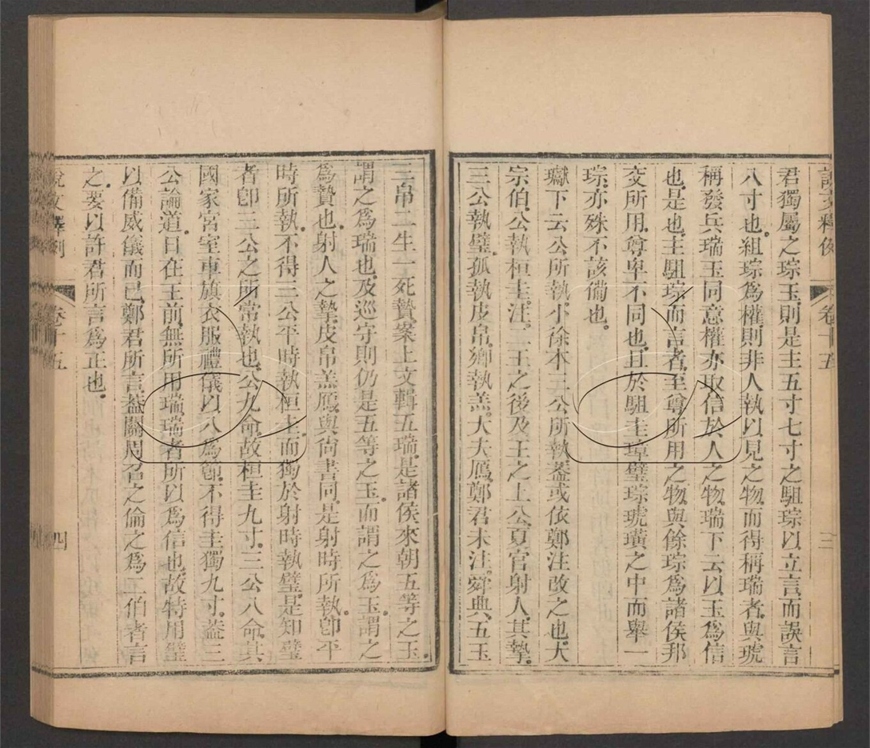 君獨屬之琮玉則是主五寸七寸之駔琮以立言而誤言
八寸也組琮為權則非人執以見之物而得稱瑞者與琥
稱發兵瑞玉同意權亦取信於人之物瑞下云以玉為信
也是也主駔琮而言者至尊所用之物與餘琮為諸侯邦
交所用尊卑不同也且於駔圭璋璧琮琥璜之中而舉一
琮亦殊不該備也
瓛下云公所執小徐本三公所執蓋或依鄭注改之也大
宗伯公執桓圭注二王之後及王之上公夏官射人其摯
三公執璧孤執皮帛卿執羔大夫鴈鄭君未注舜典五玉
三帛二生一死贄案上文輯五瑞是諸侯來朝五等之玉
謂之為瑞也及巡守則仍是五等之玉而謂之為玉謂之
為贄也射人之摯皮帛羔鴈與尙書同是射時所執卽平
時所執不得三公平時執桓圭而獨於射時執璧是知璧
者卽三公之所常執也公九命故桓圭九寸三公八命其
國家宮室車旗衣服禮儀以八為節不得圭獨九寸蓋三
公論道日在王前無所用瑞瑞者所以為信也故特用璧
以備威儀而已鄭君所言蓋關周召之倫之為二伯者言
之要以許君所言為正也
說文釋例
卷十五
三
四